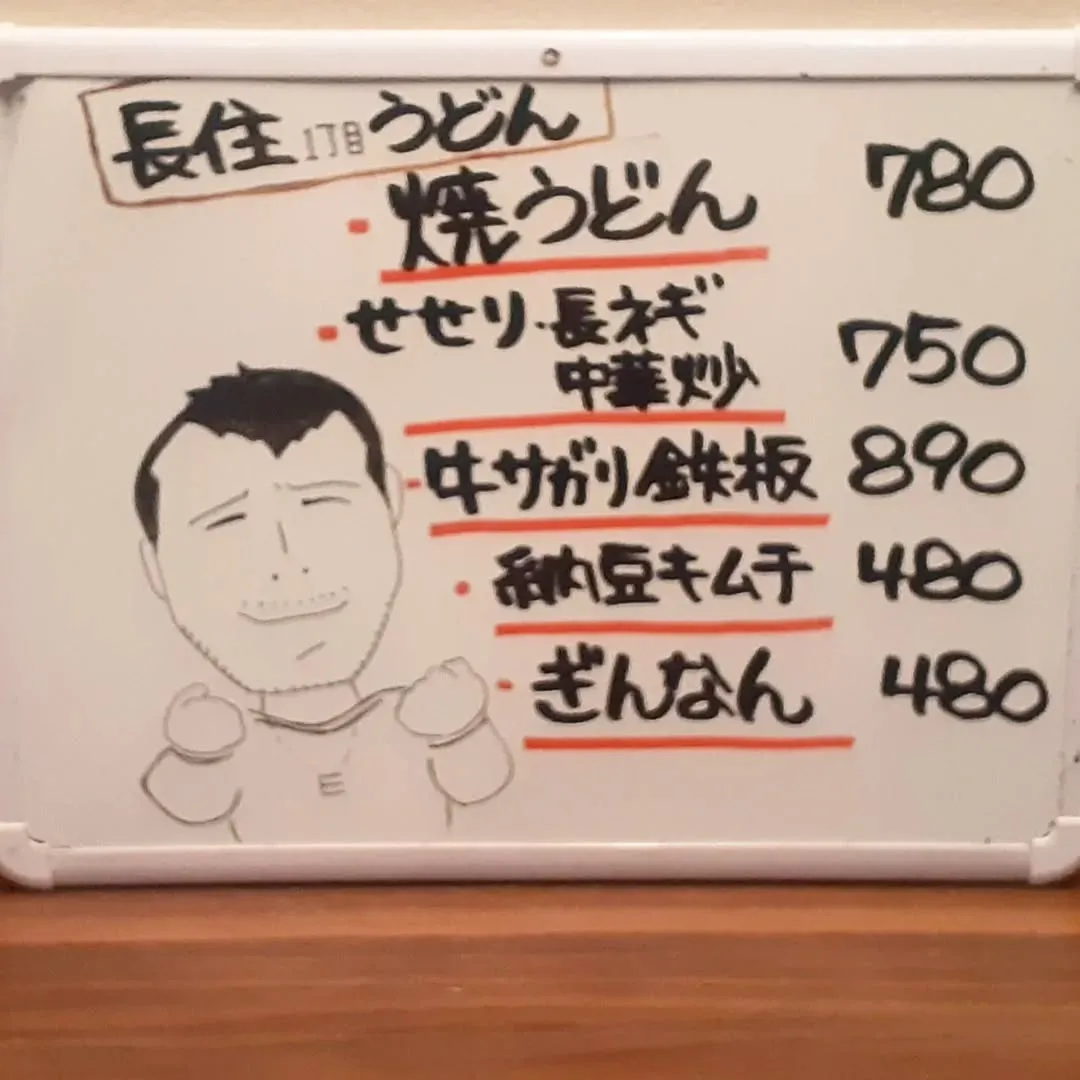 長住1丁目うどん
・焼うどん 780
・せせり・長ネギ
中華炒 750
・牛サガリ鉄板 890
・納豆キムチ 480
・ぎんなん 480
E